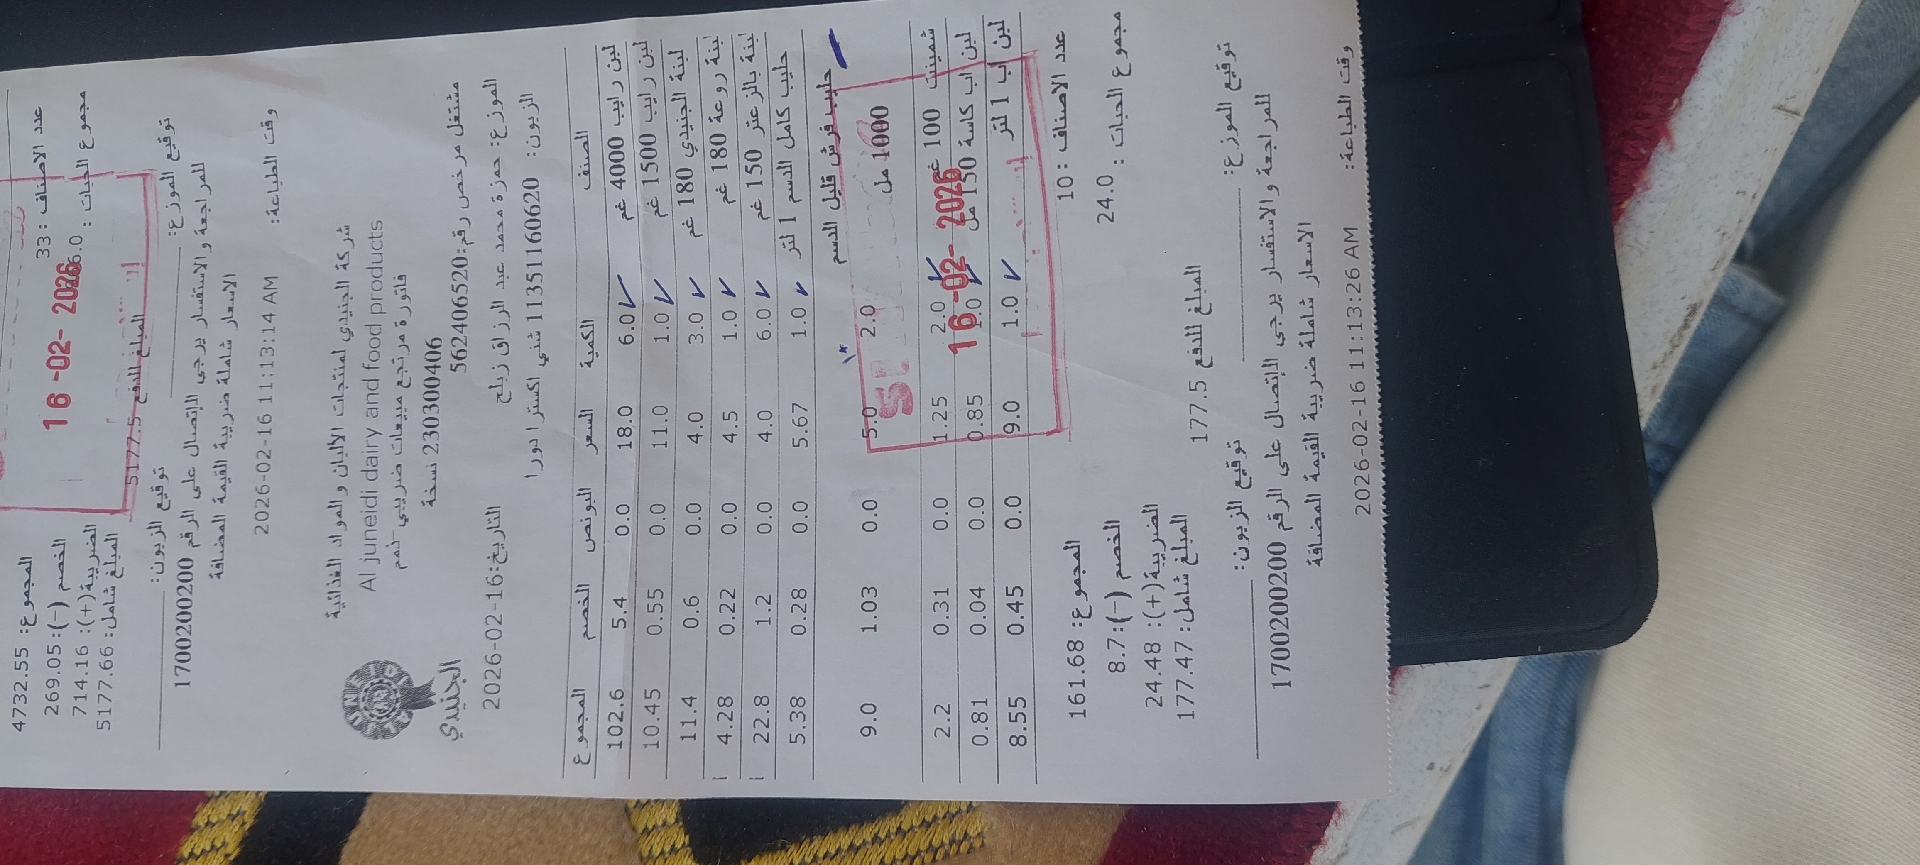 المجموع: 4732.55
عدد الاصناف : 33
الخصم (-): 269.05
مجموع الحبات :
الضريبة(+): 714.16
16-02-2026
المبلغ شامل: 5177.66
المبلغ للدفع 5177.5
توقيع الموزع:
توقيع الزبون:
للمراجعة والاستفسار يرجى الاتصال على الرقم 1700200200
الاسعار شاملة ضريبة القيمة المضافة
وقت الطباعة: 2026-02-16 11:13:14 AM
شركة الجنيدي لمنتجات الالبان والمواد الغذائية
Al juneidi dairy and food products
فاتورة مرتجع مبيعات ضريبي-ذمم
23030406 نسخة
الجنيدي
مشتغل مرخص رقم:562406520
الموزع: حمزة محمد عبد الرزاق زبلح
التاريخ:16-02-2026
الزبون: 11351160620 شني اكسترا دورا
الصنف الكمية السعر البونص الخصم المجموع
لبن رايب 4000 غم 6.0 18.0 0.0 5.4 102.6
لبن رايب 1500 غم 1.0 11.0 0.0 0.55 10.45
لبنة الجنيدي 180 غم 3.0 4.0 0.0 0.6 11.4
لبنة روعة 180 غم 1.0 4.5 0.0 0.22 4.28
لبنة بالزعتر 150 غم 6.0 4.0 0.0 1.2 22.8
حليب كامل الدسم 1 لتر 1.0 5.67 0.0 0.28 5.38
حليب فرش قليل الدسم
1000 مل 2.0 5.0 0.0 1.03 9.0
شمينت 100 غم 2.0 1.25 0.0 0.31 2.2
16-02-2026
لبن اب كاسة 150 مل 1.0 0.85 0.0 0.04 0.81
لبن اب 1 لتر 1.0 9.0 0.0 0.45 8.55
عدد الاصناف : 10
المجموع: 161.68
مجموع الحبات : 24.0
الخصم (-): 8.7
الضريبة(+): 24.48
المبلغ شامل: 177.47
المبلغ للدفع 177.5
توقيع الموزع:
توقيع الزبون:
للمراجعة والاستفسار يرجى الاتصال على الرقم 1700200200
الاسعار شاملة ضريبة القيمة المضافة
وقت الطباعة: 2026-02-16 11:13:26 AM